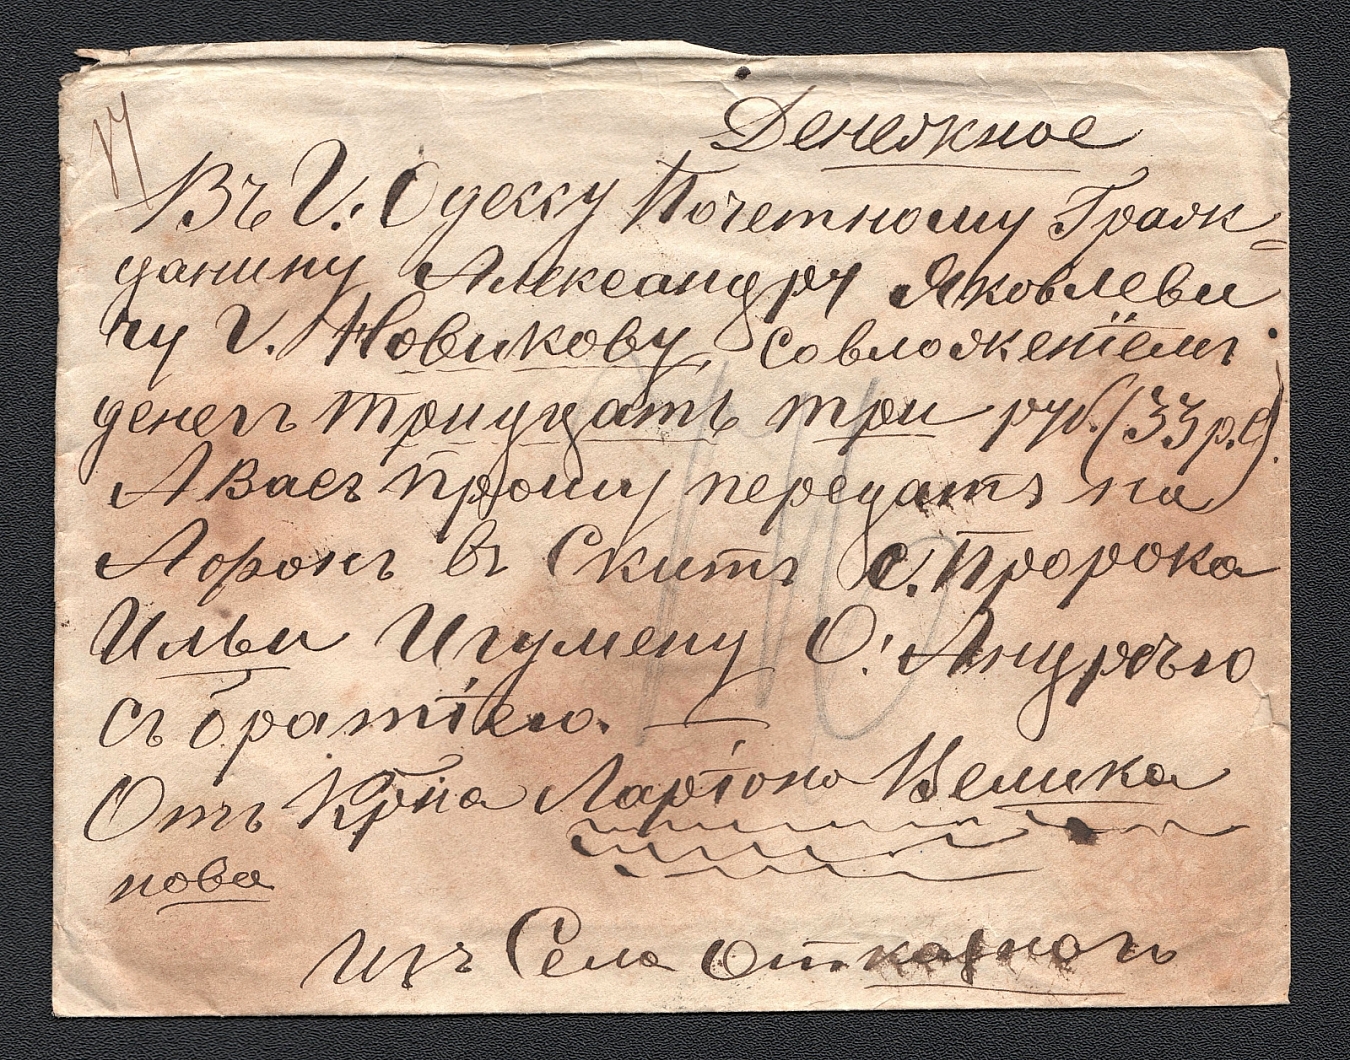 Денежное
Въ Г. Одессу Почетному Граж-
данину Александру Яковлеви
чу Г. Новикову, совложеніемъ
денегъ тридцать три руб. (33 р. с).
А Васъ прошу передать на
Афонъ въ Скитъ с. Пророка
Ильи Игумену О. Андрѣю
съ братіею.
Отъ Кр-на Ларіона Велика
нова
Изъ Села